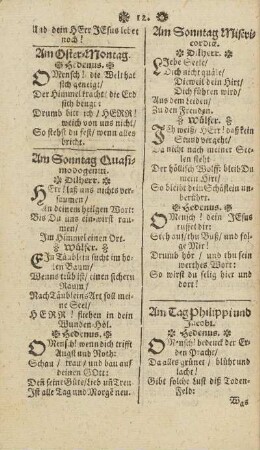 12.
Und dein HErr JEsus lebet
noch!
Am Oster-Montag.
Hedenus.
O Mensch! die Welt hat
sich geneigt/
Der Himmel tracht/ die Erd
sich beugt:
Drumb bitt ich / HERR!
weich von uns nicht/
So stehst du fest/ wenn alles
bricht.
Am Sonntag Quasi-
modogeniti.
Dilherr.
HErr/ laß uns nichts ver-
säumen/
In deinem heiligen Wort:
Bis Du uns ein-
Im Himmel einen Ort.
Wülfer.
Ein Täublein sucht im ho-
len Baum/
Wenns trüb ist/ einen sichern
Raum/
Nach Täubleins Art soll mei-
ne Seel/
HERR! fliehen in dein
Wunden-Höl.
Hedenus.
O Mensch! wenn dich trifft
Angst und Noth:
Schau / trau/ und bau auf
deinen GOtt:
Deñ seine Güte/ Lieb uñ Treu
Ist alle Tag und Morgē neu.
Am Sonntag Miseri-
cordiæ.
Dilherr.
Liebe Seele/
Dich nicht quäle/
Dieweil dein Hirt/
Dich führen wird/
Aus dem Leiden/
Zu den Freuden.
Wülfer.
Ich weiß: HErr! daß kein
vergeht/
Da nicht nach meiner See-
len steht
Der höllisch Wolff: bleib Du
mein Hirt/
So bleibt dein Schäflein un-
verführt.
Hedenus.
O Mensch! dein JEsus
ruffet dir:
Steh auf/ thu Buß/ und fol-
ge mir!
Drumd hör / und thu sein
werthes Wort:
So wirst du selig hier und
dort!
Am Tag Philippi und
Jacobi.
Hedenus.
O Mensch! bedenck der Er-
den Pracht/
Da alles grünet / blüht und
lacht/
Gibt solche Lust diß Toden-
Feld:
Was